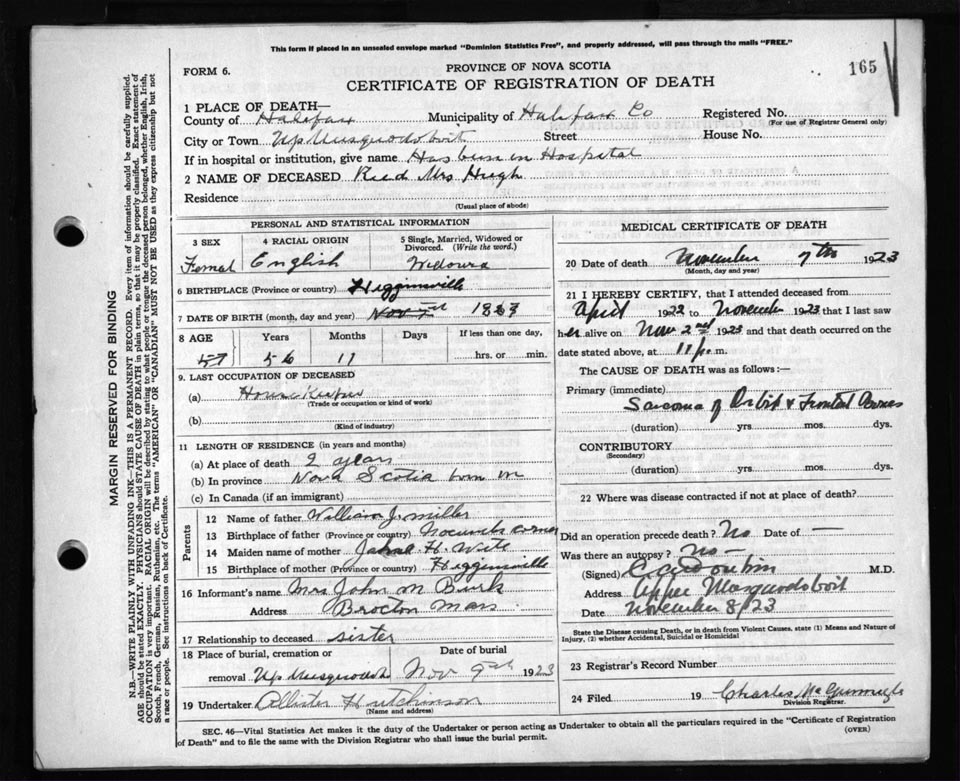 This form if placed in an unsealed envelope marked "Dominion Statistics Free", and properly addressed, will pass through the mails "FREE."
FORM 6.
PROVINCE OF NOVA SCOTIA
CERTIFICATE OF REGISTRATION OF DEATH
165
1 PLACE OF DEATH—
County of Halifax Municipality of Halifax Co Registered No.
(For use of Registrar General only)
City or Town Up Musquodoboit Street House No.
If in hospital or institution, give name Has been in Hospital
2 NAME OF DECEASED Reed Mrs Hugh
Residence
(Usual place of abode)
PERSONAL AND STATISTICAL INFORMATION
3 SEX 4 RACIAL ORIGIN 5 Single, Married, Widowed or Divorced. (Write the word.)
Femal English
6 BIRTHPLACE (Province or country) Higginsville
7 DATE OF BIRTH (month, day and year) Nov 1863
8 AGE Years Months Days If less than one day,
57 56 11 hrs. or min.
9. LAST OCCUPATION OF DECEASED
(a) House Keeper
(Trade or occupation or kind of work)
(b)
(Kind of industry)
11 LENGTH OF RESIDENCE (in years and months)
(a) At place of death 2 years
(b) In province Nova Scotia born in
(c) In Canada (if an immigrant)
Parents
12 Name of father William J. Miller
13 Birthplace of father (Province or country) corner
14 Maiden name of mother H.
15 Birthplace of mother (Province or country) Higginsville
16 Informant's name Mrs John M Burk
Address Brocton Mass
17 Relationship to deceased sister
18 Place of burial, cremation or removal Date of burial
Up Musquodoboit Nov 9th 1923
19 Undertaker Allister Hutchinson
(Name and address)
MEDICAL CERTIFICATE OF DEATH
20 Date of death November 7th 1923
(Month, day and year)
21 I HEREBY CERTIFY, that I attended deceased from
April 1922 to November 1923 that I last saw
her alive on Nov 2nd 1923 and that death occurred on the
date stated above, at 11 p.m.
The CAUSE OF DEATH was as follows:—
Primary (immediate)
Sarcoma of Orbit & Frontal
(duration) yrs. mos. dys.
CONTRIBUTORY
(Secondary)
(duration) yrs. mos. dys.
22 Where was disease contracted if not at place of death?
Did an operation precede death? No Date of —
Was there an autopsy? No —
(Signed) M.D.
Address Upper Musquodoboit
Date November 8/23
State the Disease causing Death, or in death from Violent Causes, state (1) Means and Nature of Injury, (2) whether Accidental, Suicidal or Homicidal
23 Registrar's Record Number
24 Filed 19 Charles
Division Registrar.
SEC. 46—Vital Statistics Act makes it the duty of the Undertaker or person acting as Undertaker to obtain all the particulars required in the "Certificate of Registration
of Death" and to file the same with the Division Registrar who shall issue the burial permit. (OVER)
MARGIN RESERVED FOR BINDING
N.B.—WRITE PLAINLY WITH UNFADING INK—THIS IS A PERMANENT RECORD. Every item of information should be carefully supplied.
AGE should be stated EXACTLY. PHYSICIANS should STATE CAUSE OF DEATH in plain terms, so that it may be properly classified. Exact statement of
OCCUPATION is very important. RACIAL ORIGIN will be described by stating to what people or tongue the deceased person belonged, whether English, Irish,
Scotch, French, German, Russian, Ruthenian, etc. The terms "AMERICAN" OR "CANADIAN" MUST NOT BE USED as they express citizenship but not
a race or people. See instructions on back of Certificate.